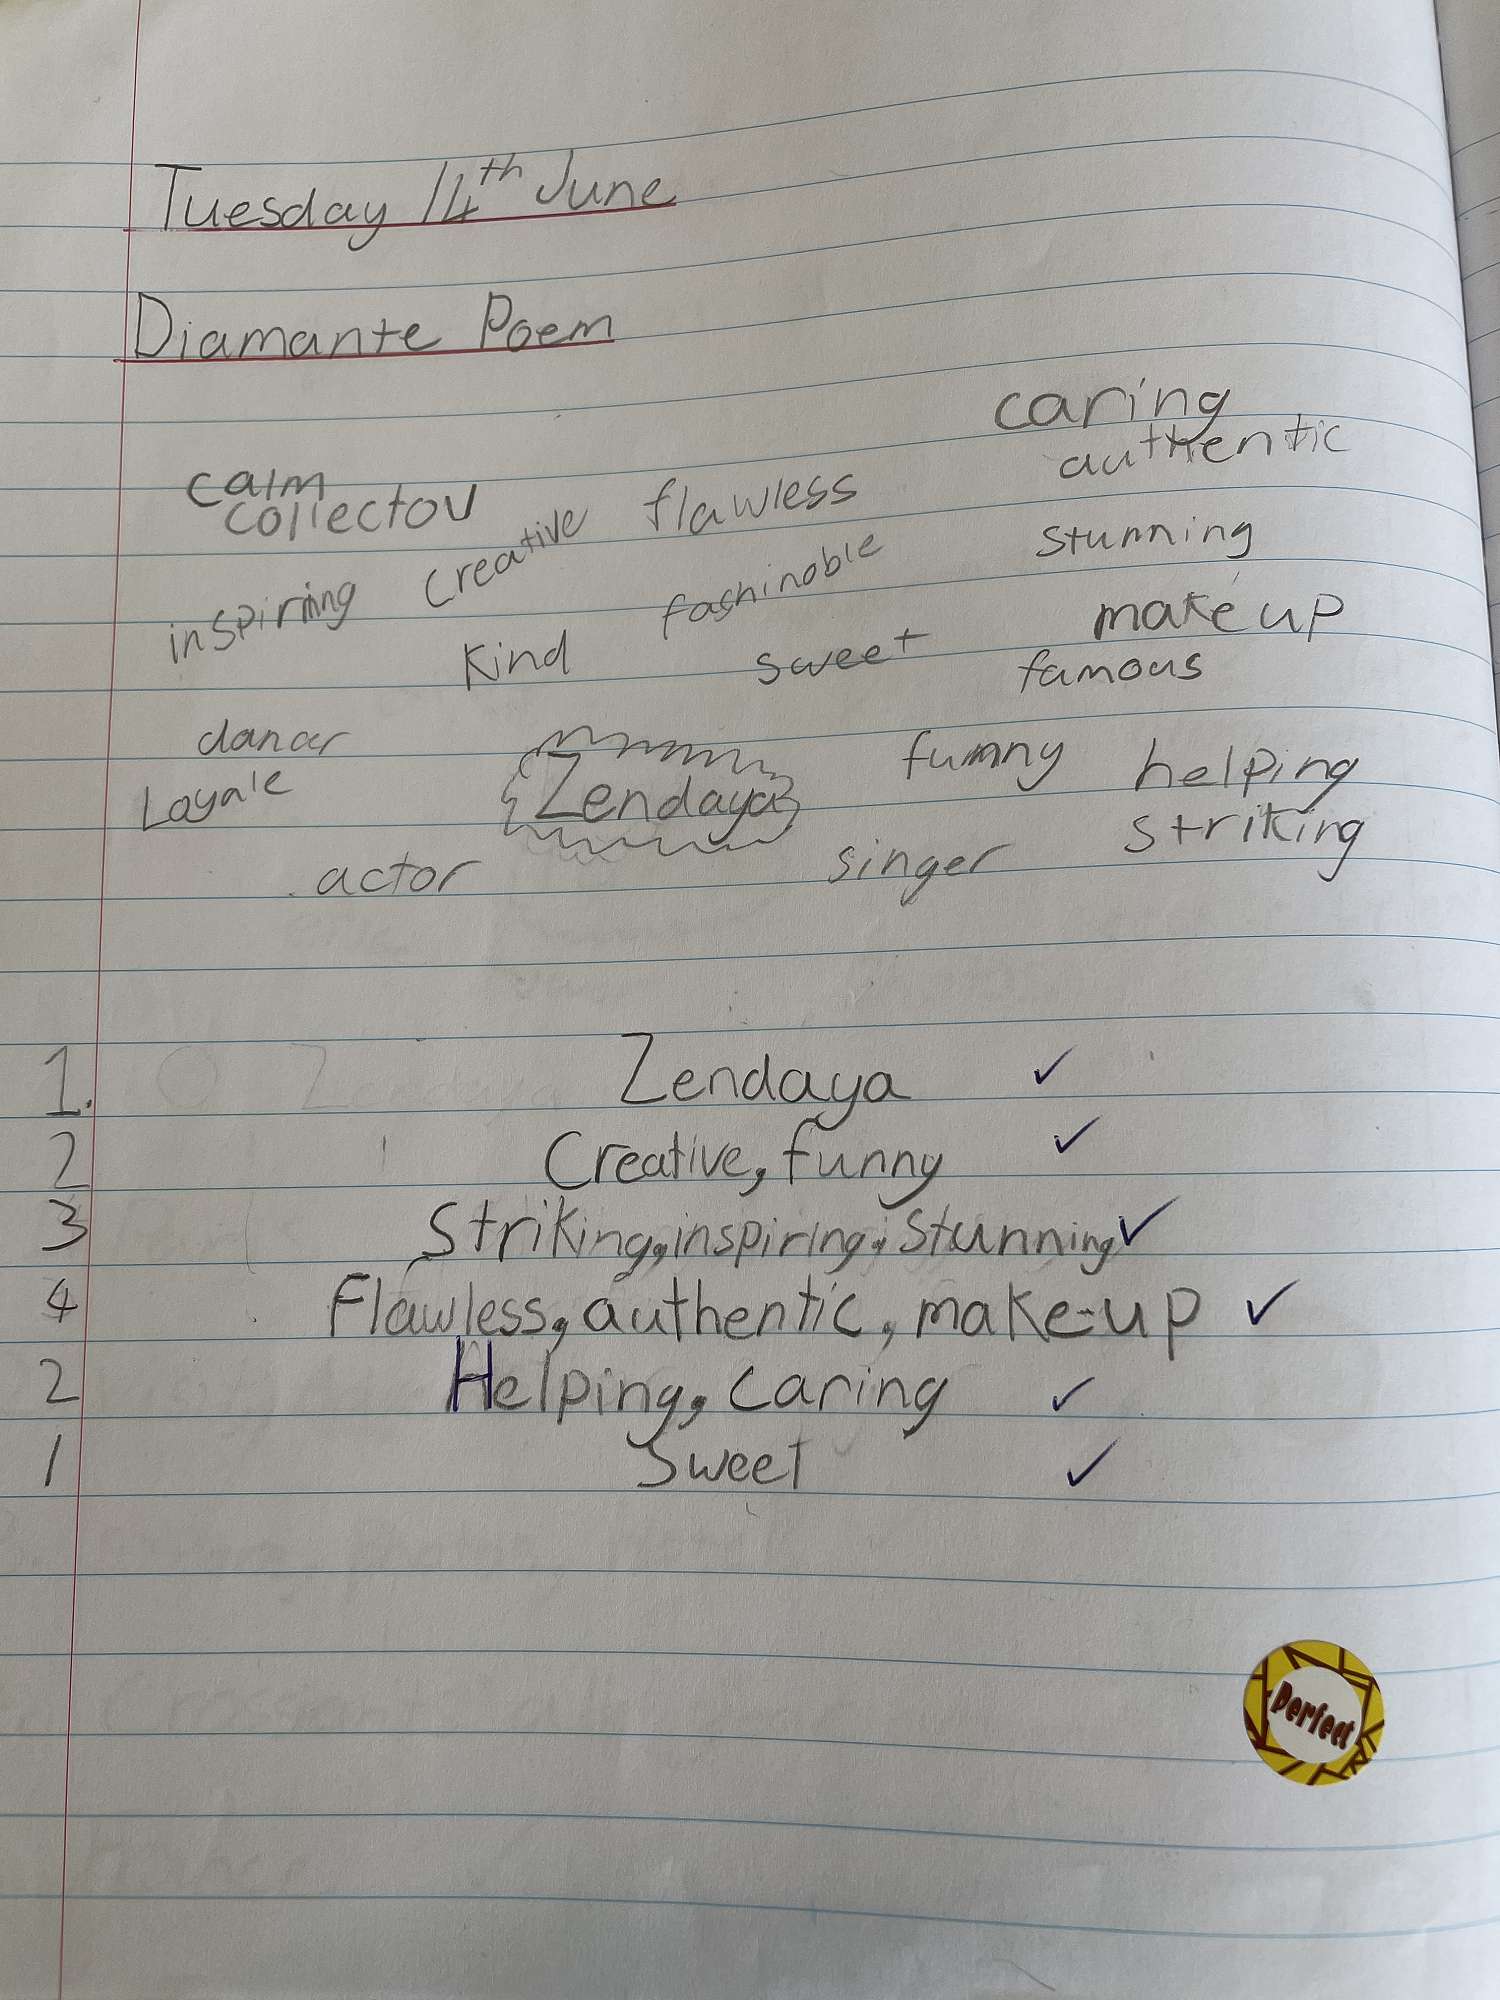 Tuesday 14th June
Diamante Poem
caring
authentic
calm
collectov
flawless
creative
stunning
inspiring
fashinoble
make up
kind
sweet
famous
dancer
Loyale
Zendaya
funny
helping
striking
actor
singer
1. Zendaya ✓
2 Creative, funny ✓
3 Striking, inspiring, stunning ✓
4 Flawless, authentic, make-up ✓
2 Helping, caring ✓
1 Sweet ✓
Perfect